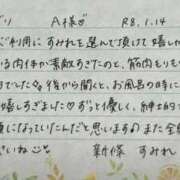 り A様 R8.1.14
ご利用に すみれを選んで頂けて嬉し
る肉体が素敵すぎたのと、筋肉もり
でした 後から聞くと、お風呂の時に
嬉しすぎました ずっと優しく、紳士的で
になっていたんだと思いますのまた会
いね 新保 すみれ